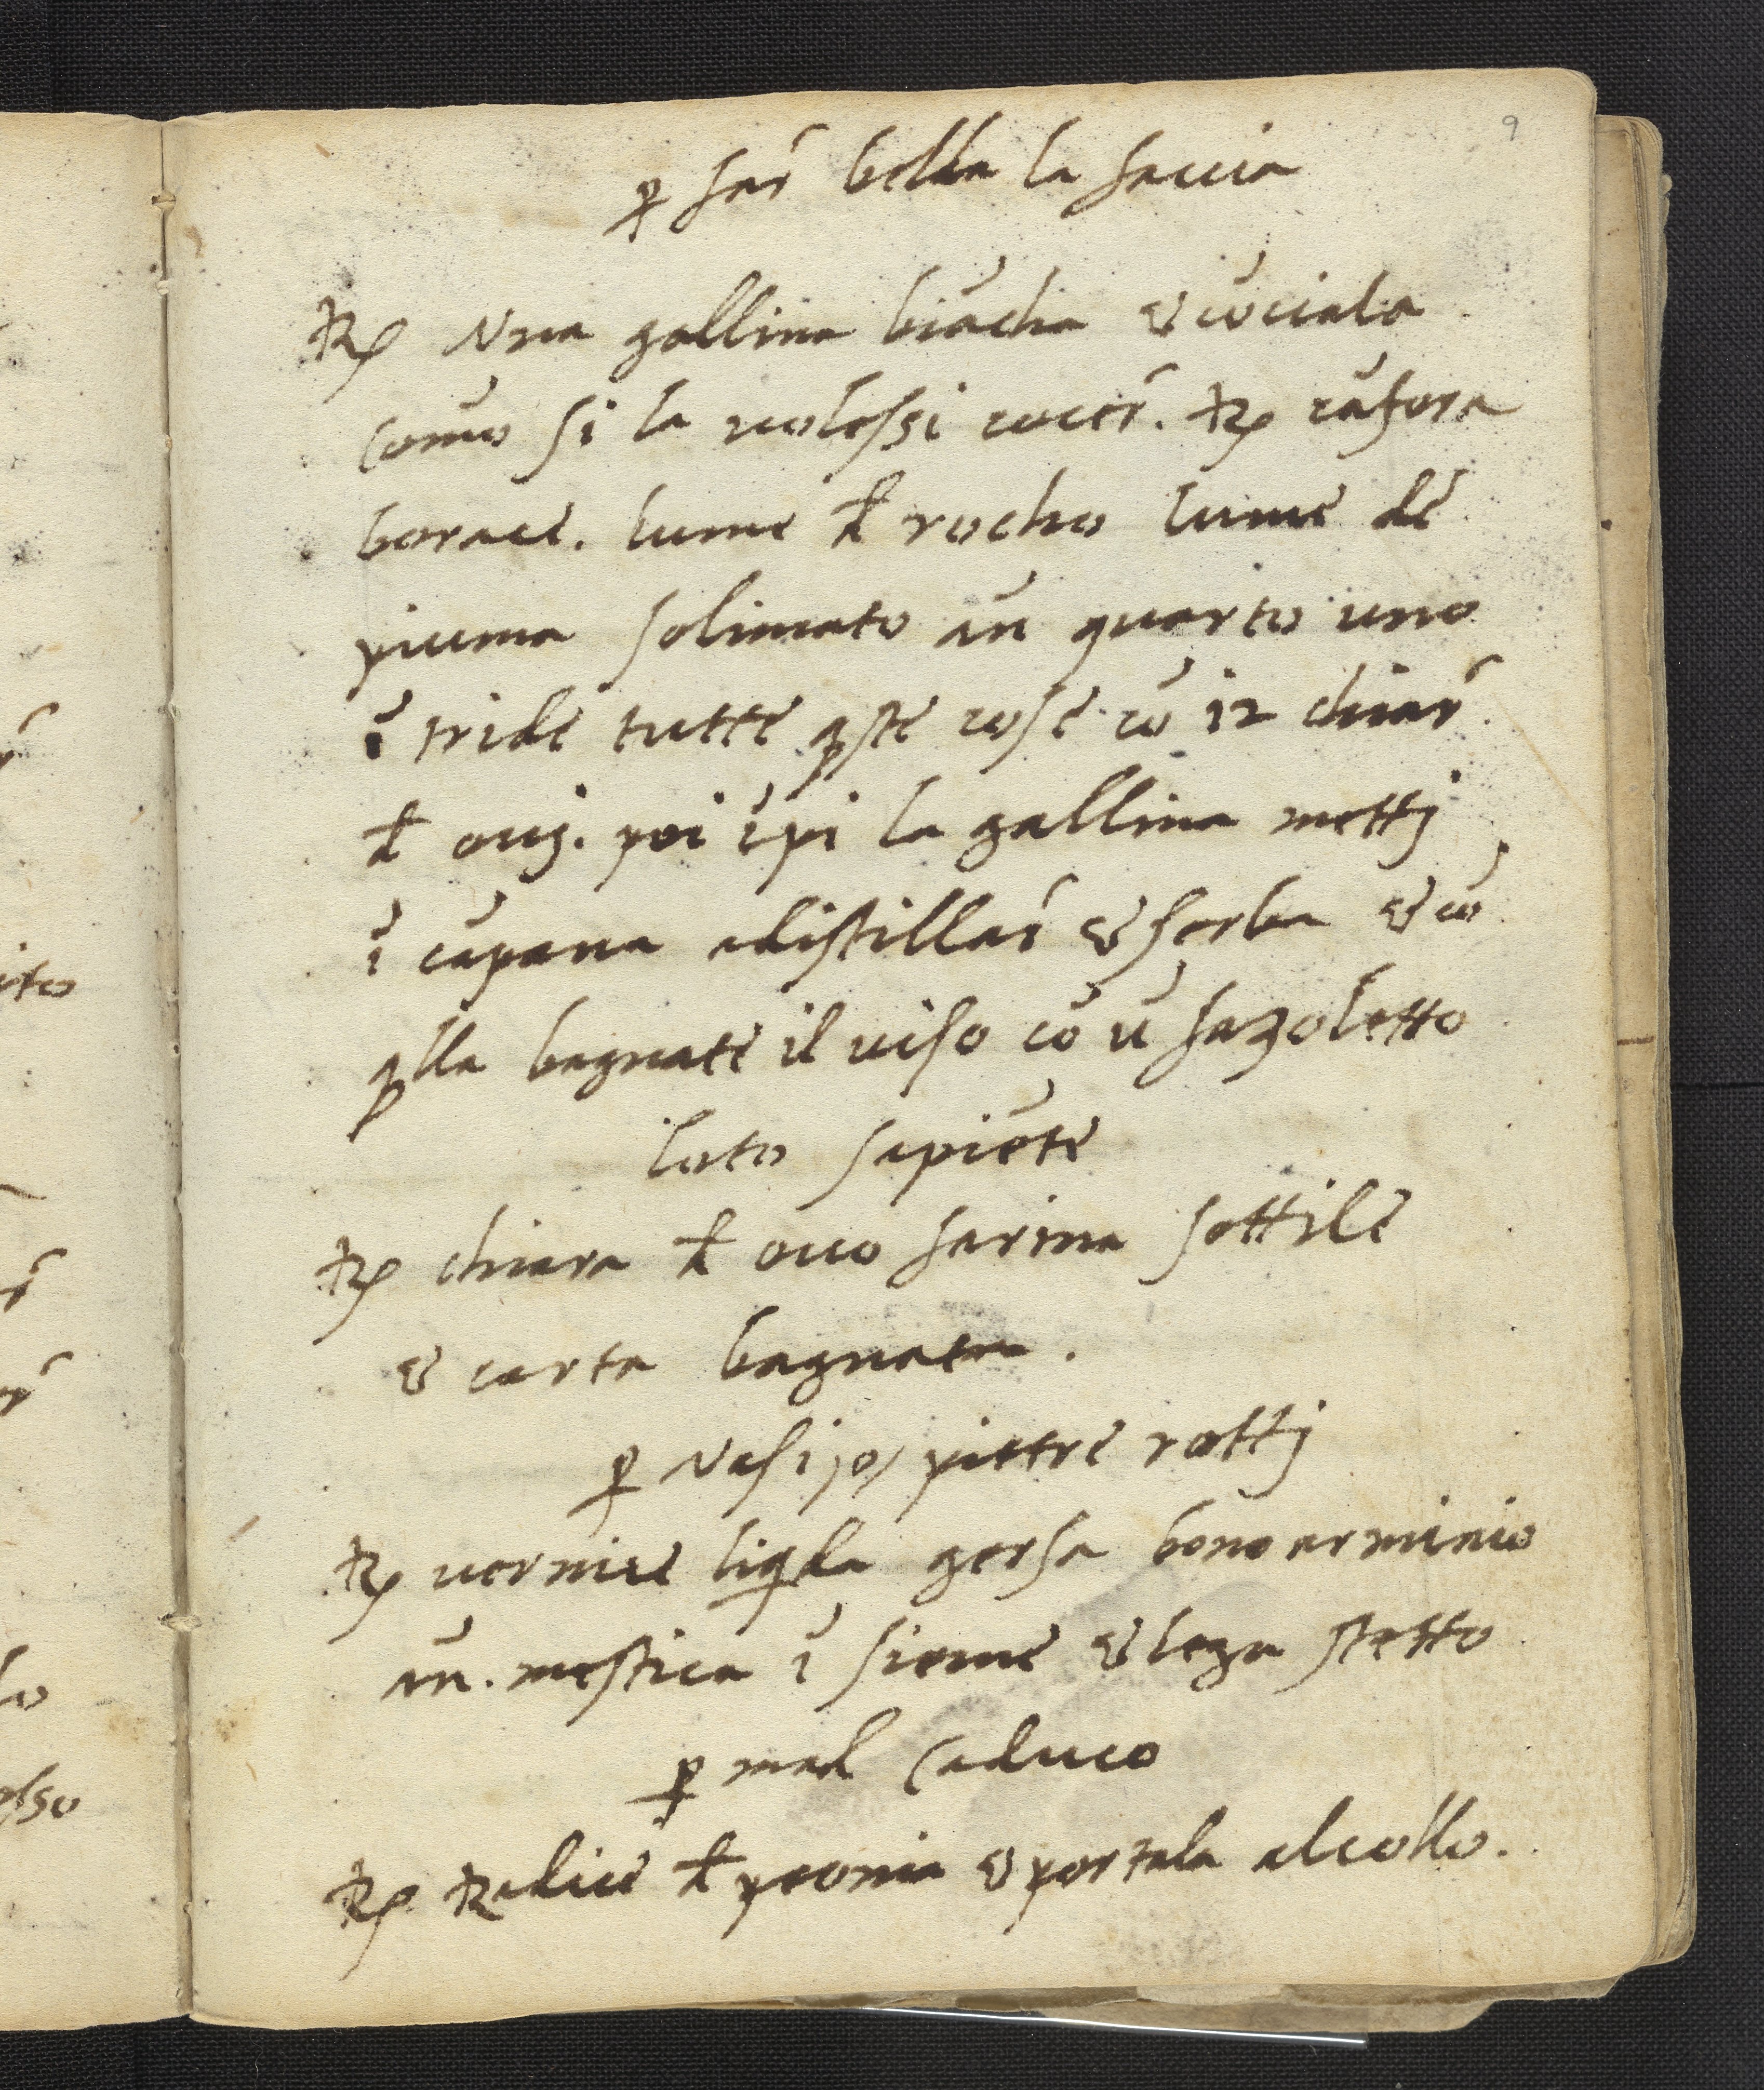 9
ꝑ far̃ bella la faccia
℞ Una gallina biãcha & cõciala
como si la volessi cocer̃. ℞ cãfora
borace. lume đ rocho lume de
piuma solimato añ quarto uno
ĩ tride tutte qste cose cõ 12 chiar̃
đ ovj. poi ĩpi la gallina mettj
ĩ cãpana adistillar̃ & serba & cõ
qlla bagnate il viso cõ ũ fazoletto
loto sapiẽte
℞ chiara đ ovo farina sottile
& carta bagnata.
ꝑ Vasi jo/ pietre rottj
℞ vernice liqda gersa bono arminio
añ. mestica ĩ sieme & lega stretto
ꝑ mal caduco
℞ Radice đ peonia & portala alcollo.